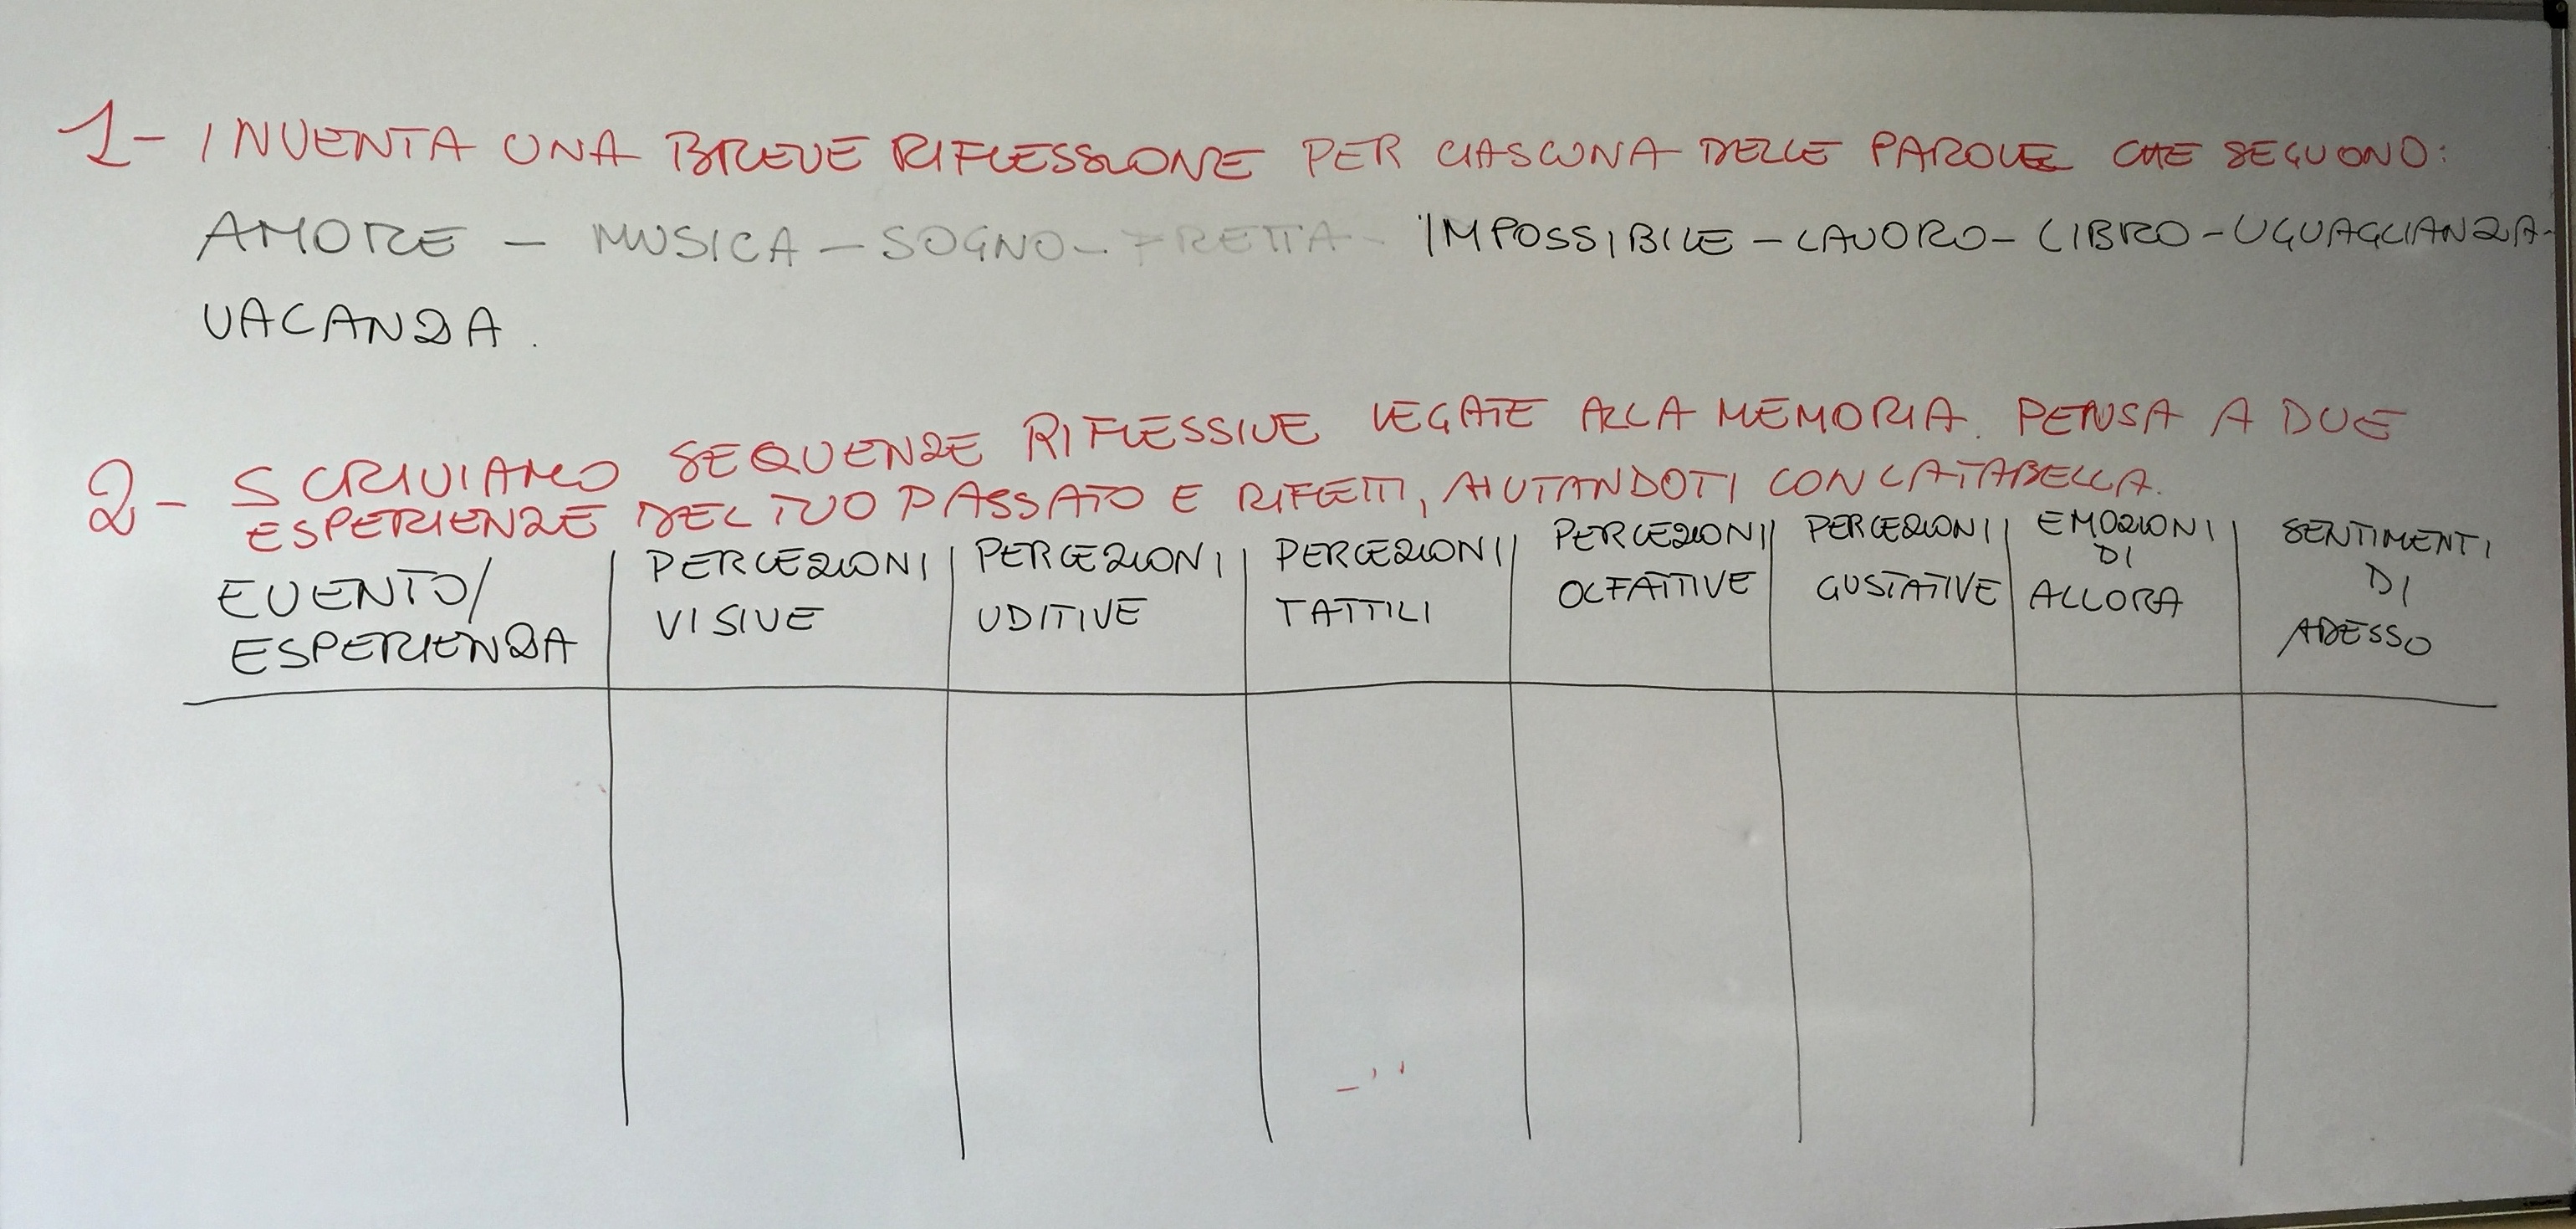 1- INVENTA UNA BREVE RIFLESSIONE PER CIASCUNA DELLE PAROLE CHE SEGUONO:
AMORE - MUSICA - SOGNO - FRETTA - IMPOSSIBILE - LAVORO - LIBRO - UGUAGLIANZA -
VACANZA.
2- SCRIVIAMO SEQUENZE RIFLESSIVE LEGATE ALLA MEMORIA. PENSA A DUE
ESPERIENZE DEL TUO PASSATO E RIFLETTI, AIUTANDOTI CON LA TABELLA.
EVENTO/
ESPERIENZA
PERCEZIONI
VISIVE
PERCEZIONI
UDITIVE
PERCEZIONI
TATTILI
PERCEZIONI
OLFATTIVE
PERCEZIONI
GUSTATIVE
EMOZIONI
DI
ALLORA
SENTIMENTI
DI
ADESSO